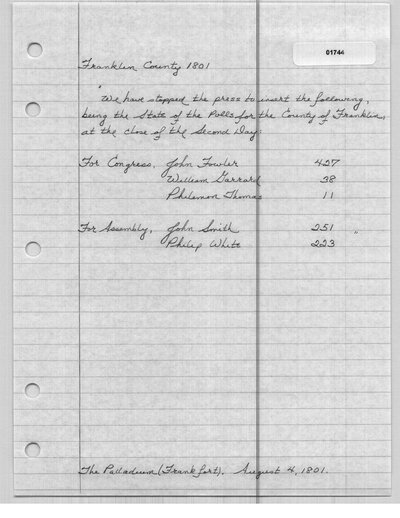 01744
Franklin County 1801
"We have stopped the press to insert the following,
being the State of the Polls for the County of Franklin,
at the close of the Second Day:
For Congress, John Fowler 427
William Garrard 38
Philemon Thomas 11
For Assembly, John Smith 251 "
Philip White 223
The Palladium (Frankfort), August 4, 1801.